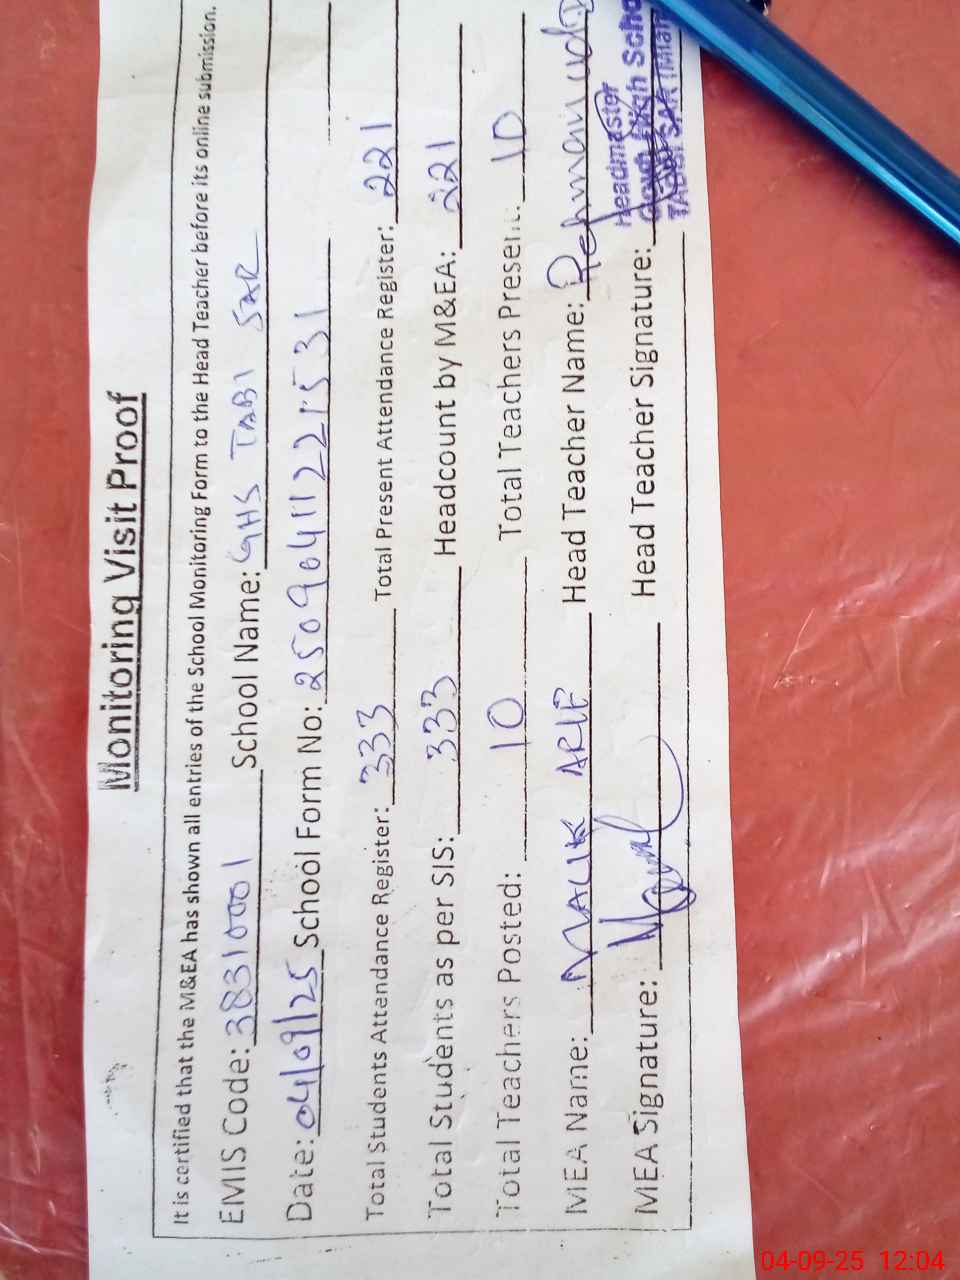 Monitoring Visit Proof
It is certified that the M&EA has shown all entries of the School Monitoring Form to the Head Teacher before its online submission.
EMIS Code: 38310001 School Name: GHS TABI SAR
Date: 04/09/25 School Form No: 25090411221531
Total Students Attendance Register: 333 Total Present Attendance Register: 221
Total Students as per SIS: 333 Headcount by M&EA: 221
Total Teachers Posted: 10 Total Teachers Present: 10
MEA Name: MALIK ARIF Head Teacher Name: Rehman
MEA Signature: Head Teacher Signature:
Headmaster
High Scho
SAR (Mian
04-09-25 12:04